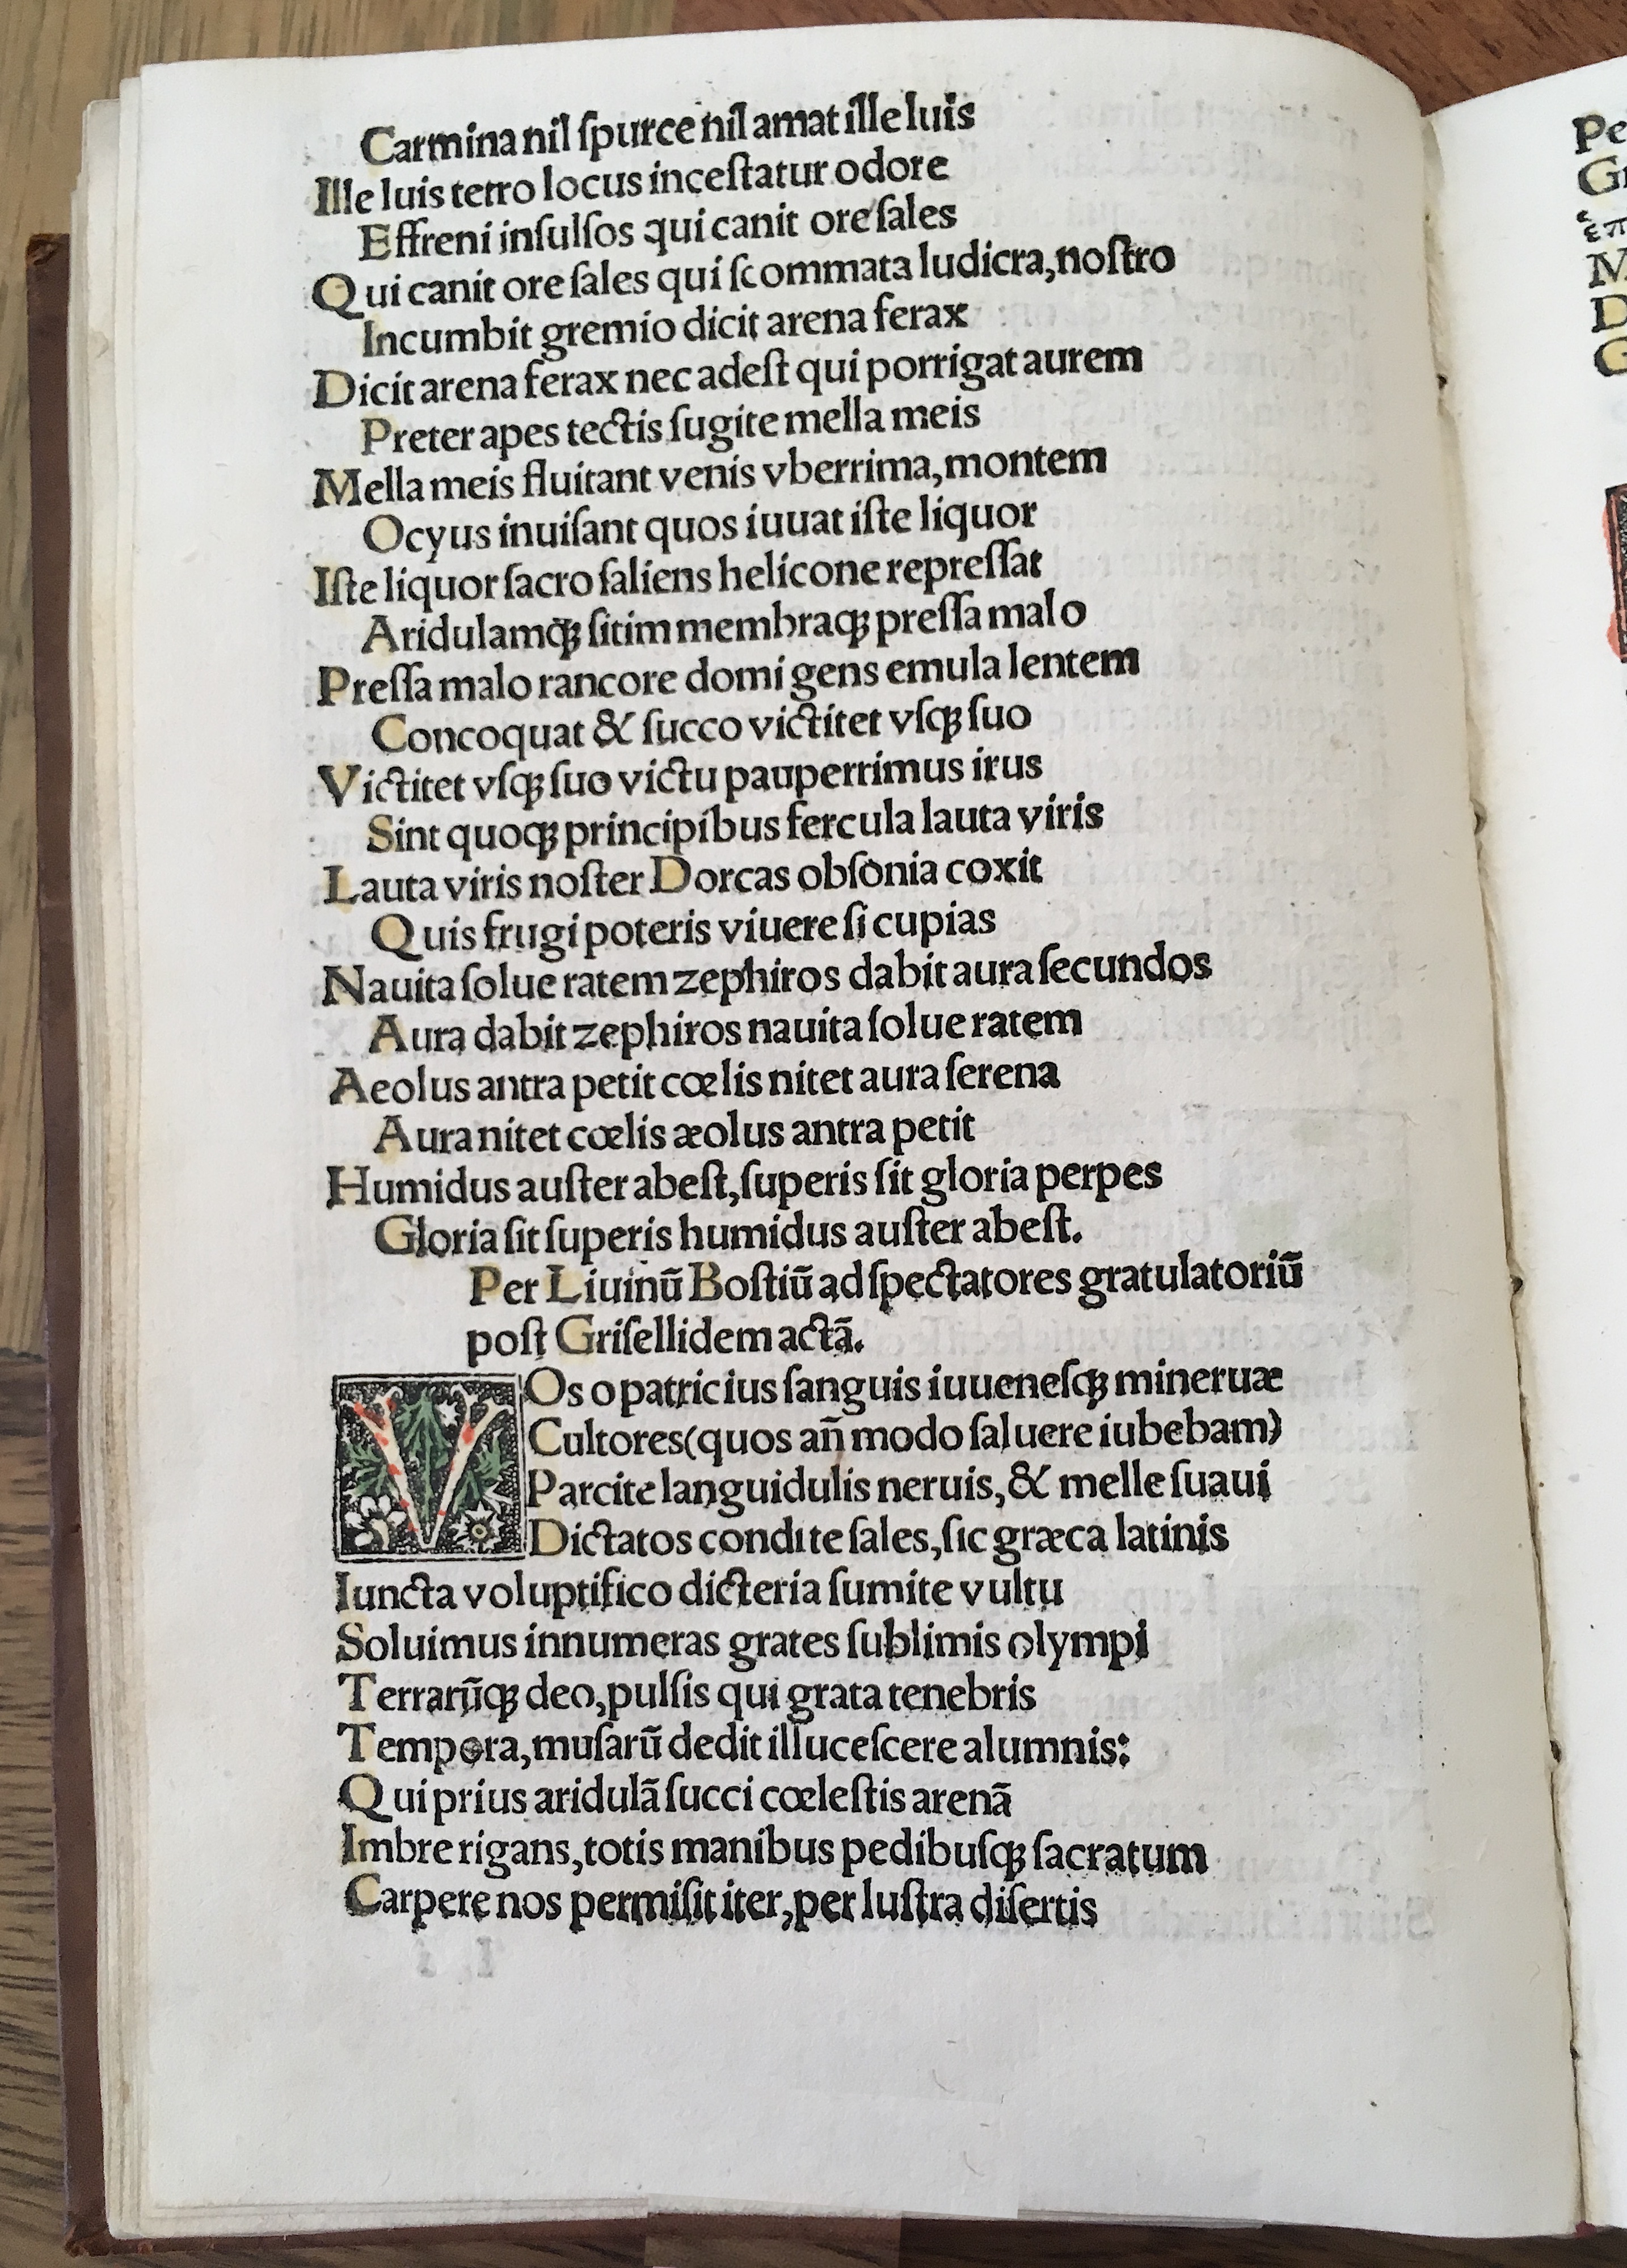 Carmina nil ſpurce nil amat ille luis
Ille luis tetro locus inceſtatur odore
Effreni inſulſos qui canit ore ſales
Qui canit ore ſales qui ſcommata ludicra, noſtro
Incumbit gremio dicit arena ferax
Dicit arena ferax nec adeſt qui porrigat aurem
Preter apes tectis ſugite mella meis
Mella meis fluitant venis vberrima, montem
Ocyus inuiſant quos iuuat iſte liquor
Iſte liquor ſacro ſaliens helicone repreſſat
Aridulamqꝫ ſitim membraqꝫ preſſa malo
Preſſa malo rancore domi gens emula lentem
Concoquat & ſucco victitet vſqꝫ ſuo
Victitet vſqꝫ ſuo victu pauperrimus irus
Sint quoqꝫ principibus fercula lauta viris
Lauta viris noſter Dorcas obſonia coxit
Quis frugi poteris viuere ſi cupias
Nauita ſolue ratem zephiros dabit aura ſecundos
Aura dabit zephiros nauita ſolue ratem
Aeolus antra petit cœlis nitet aura ſerena
Aura nitet cœlis æolus antra petit
Humidus auſter abeſt, ſuperis ſit gloria perpes
Gloria ſit ſuperis humidus auſter abeſt.
Per Liuinū Boſtiū ad ſpectatores gratulatoriū
poſt Griſellidem actā.
VOs o patricius ſanguis iuueneſqꝫ mineruæ
Cultores (quos an̄ modo ſaluere iubebam)
Parcite languidulis neruis, & melle ſuaui
Dictatos condite ſales, ſic græca latinis
Iuncta voluptifico dicteria ſumite vultu
Soluimus innumeras grates ſublimis olympi
Terrarūqꝫ deo, pulſis qui grata tenebris
Tempora, muſarū dedit illuceſcere alumnis:
Qui prius aridulā ſucci cœleſtis arenā
Imbre rigans, totis manibus pedibuſqꝫ ſacratum
Carpere nos permiſit iter, per luſtra diſertis
Pe
G
επ
M
D
G